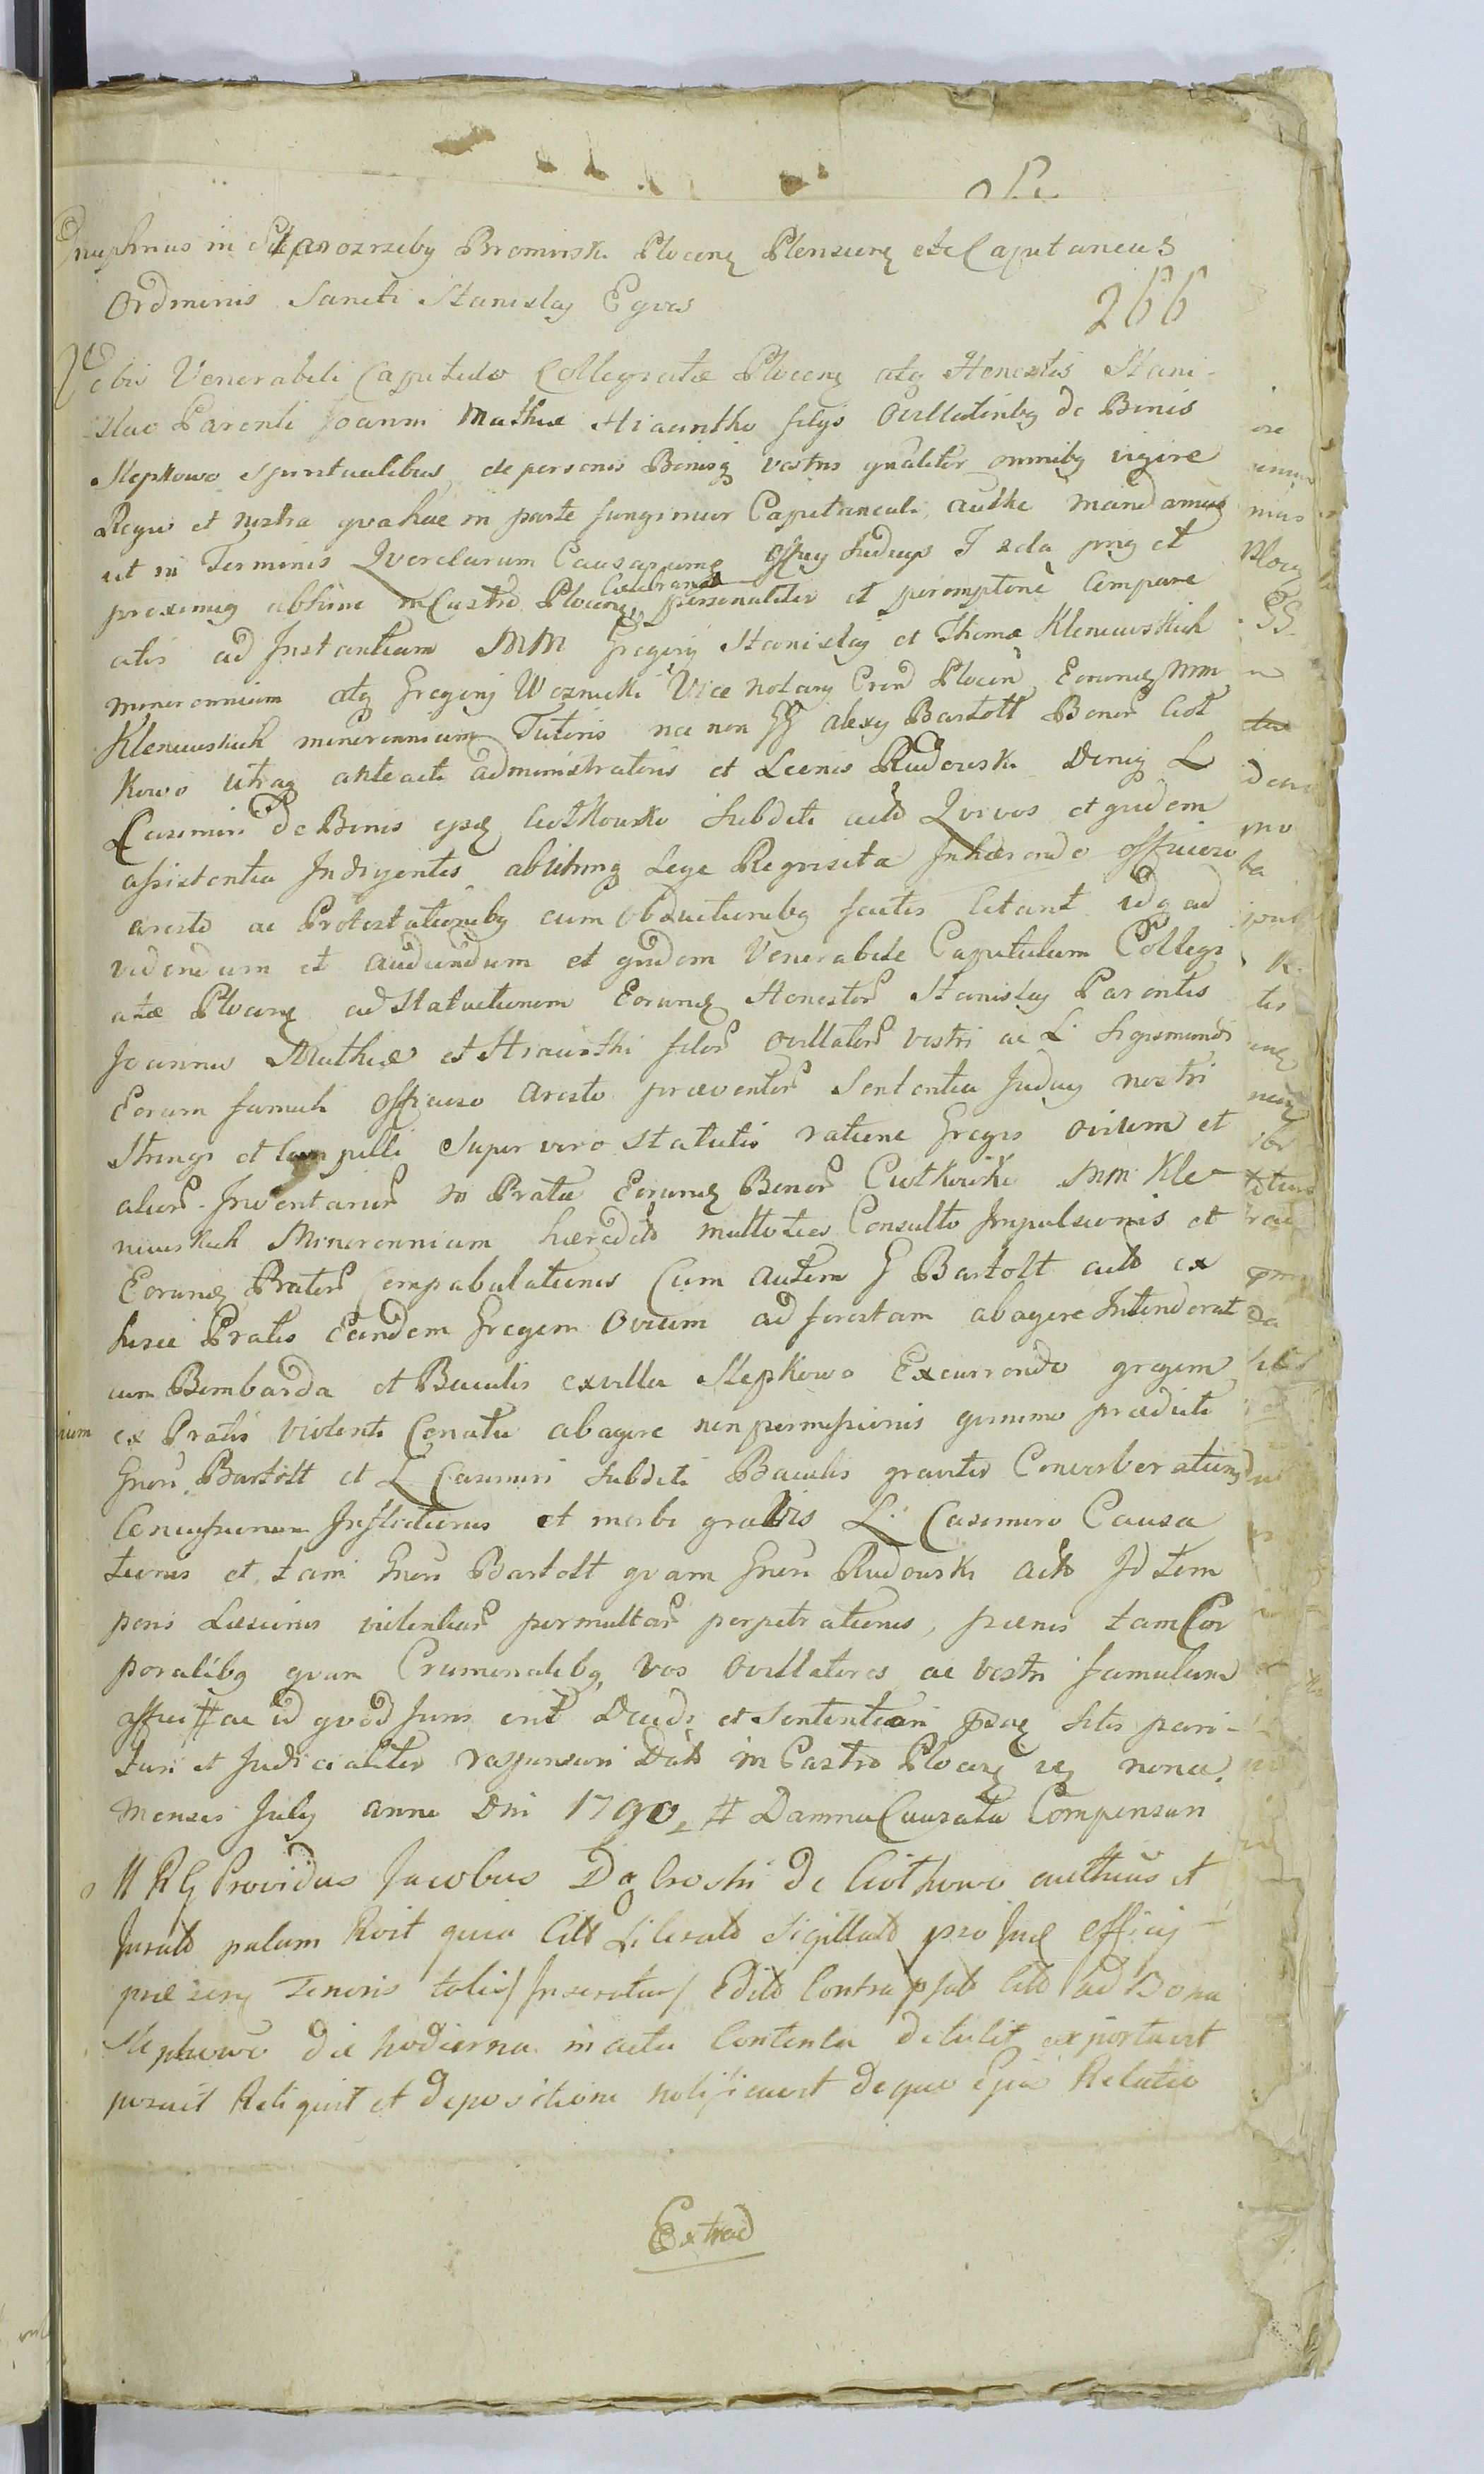 Onuphrius in Staroźreby Bromirski Plocenꝫ Plensienꝫ etc Capitaneus
Ordminis Sancti Stanislaj Eqves
266
Vobis Venerabili Capitulo Collegiatæ Plocenꝫ atq Honestis Stani-
slao Parenti Joanni Mathiæ Hiacintho filys Ovillatoribq de Bonis
Slepkowo Spiritualibus, de personis Bonisq vestris gnaliter omnibq vigore
Regia et nostra qva hac in parte fungimur Capitaneali autthe mandamus
ut in Terminis Qverelarum Causarumq Offcij Judicys
proxime abhinc in Castro Plocenꝫ Celebrandis personaliter et peremptorie Compare
atis ad Instantiam MM Gregorij Stanislaj et Thomæ Kleniewskich
minorennium atq Gregorij Woznicki Vice Notarij Plocen Eorundꝫ MM
Kleniewskich minorennium Tutoris nec non G alexy Bartolt Bonor Ciot
kowo administratoris et Leonis Rudowski Deniq L
Casimiri de Bonis Ciotkowo Subditi actō et qvidem
assistentia Indigentes Lege Reqvisita Inhærendo officioso
aresto ac Protestationibq cum obductionibq factis Citant idq ad
videndum et audiendum et qvidem Venerabile Capitulum Collegi
atæ Plocenꝫ ad Statuitionem Eorundꝫ Honestor Stanislaj Parentis
Joannis Mathiæ et Hiacinthi filior Ovillator vestri ac L. Sigismundi
Eorum famuli Officioso aresto præventor Sententia Judicij nostri
Stringi et Compelli Super vero Statutis ratione Gregis Ovium et
alior Inventarior in Prata Eorundꝫ Bonor Ciotkowo MM Kle-
niewskich Minorennium hæredō multoties Consulto Impulsionis et
Eorundꝫ Prator Compabulationis Cum autem G Bartolt actō ex
hisce Pratis Eundem Gregem Ovium ad forestam abagere Intenderat
cum Bombarda et Baculis ex villa Slepkowo Excurrendo gregem
ex Pratis violenti Conatu abagere non permissionis qvinimo prædicti
Gnosi Bartolt et L Casimiri Subditi Baculis graviter Converberationis
Concussionum Inflictionis et morbi gravis L. Casimiro Causa
tionis et tam Gnosi Bartolt qvam Gnosi Rudowski actō Id tem
poris Læsionis violentiar permultar perpetrationis, pænis tam Cor
poralibq qvam Criminalibq Vos Ovillatores ac vestri famulum
affici # ac id qvod Juris erit Decidi et Sententiari Sitis pari-
turi et Judicialiter responsuri Datō in Castro Plocenꝫ die nona
Mensis July anno Dni 1790 # Damna Causata Compensari
# RG Providus Jacobus Dąbroski de Ciotkowo autticus et
Juratō palam Rvit qvia Citt Literatō Sigillatō pro Officij
Tenoris talis/ Inseratur/ Editō Contra Citō ad Bona
Slepkowo die hodierna in actu Contenta detulit exportavit
posuit Reliqvit et depositione notificavit deqvo Relatio
Extrad